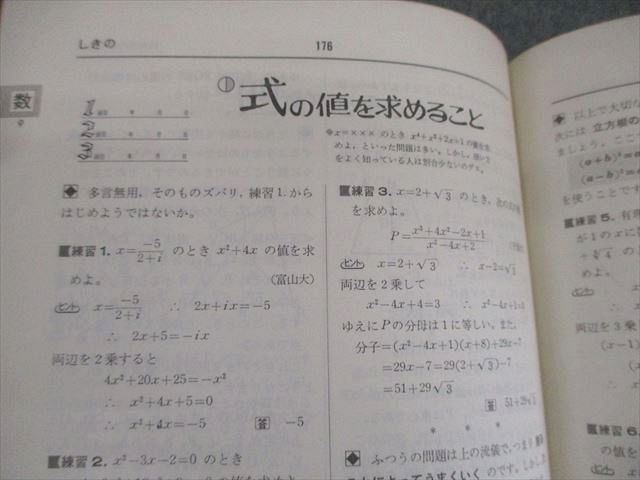 しきの
176
数
① 式の値を求めること
◆ 多言無用，そのものズバリ，練習1．から
はじめようではないか。
練習1. x=-5/(2+i) のとき x²+4x の値を求
めよ。 (富山大)
ヒント x=-5/(2+i) ∴ 2x+ix=-5
∴ 2x+5=-ix
両辺を2乗すると
4x²+20x+25=-x²
∴ x²+4x+5=0
∴ x²+4x=-5 答 -5
練習2. x²-3x-2=0 のとき
※x=××× のとき x⁴+x²+2x+1 の値を求
めよ，といった問題は多い。しかし，使い方
をよく知っている人は割合少ないのデス。
練習3. x=2+√3 のとき，次の
を求めよ。
P=(x³+4x²-2x+1)/(x²-4x+2)
ヒント x=2+√3 ∴ x-2=√3
両辺を2乗して
x²-4x+4=3 ∴ x²-4x+1=0
ゆえにPの分母は1に等しい。また，
分子=(x²-4x+1)(x+8)+29x-7
=29x-7=29(2+√3)-7
=51+29√3
答 51+29√3
* * *
◆ ふつうの問題は上の流儀で，つまり
のです。しかし
◆ 以上で大切な
次には 立方根の
ましょう。ここ
(a+b)³=a
(a-b)³=a
を使うことです
練習5. 有理
が1のxに
めよ。
ヒント
両辺を3乗
(x-1)
練習6.